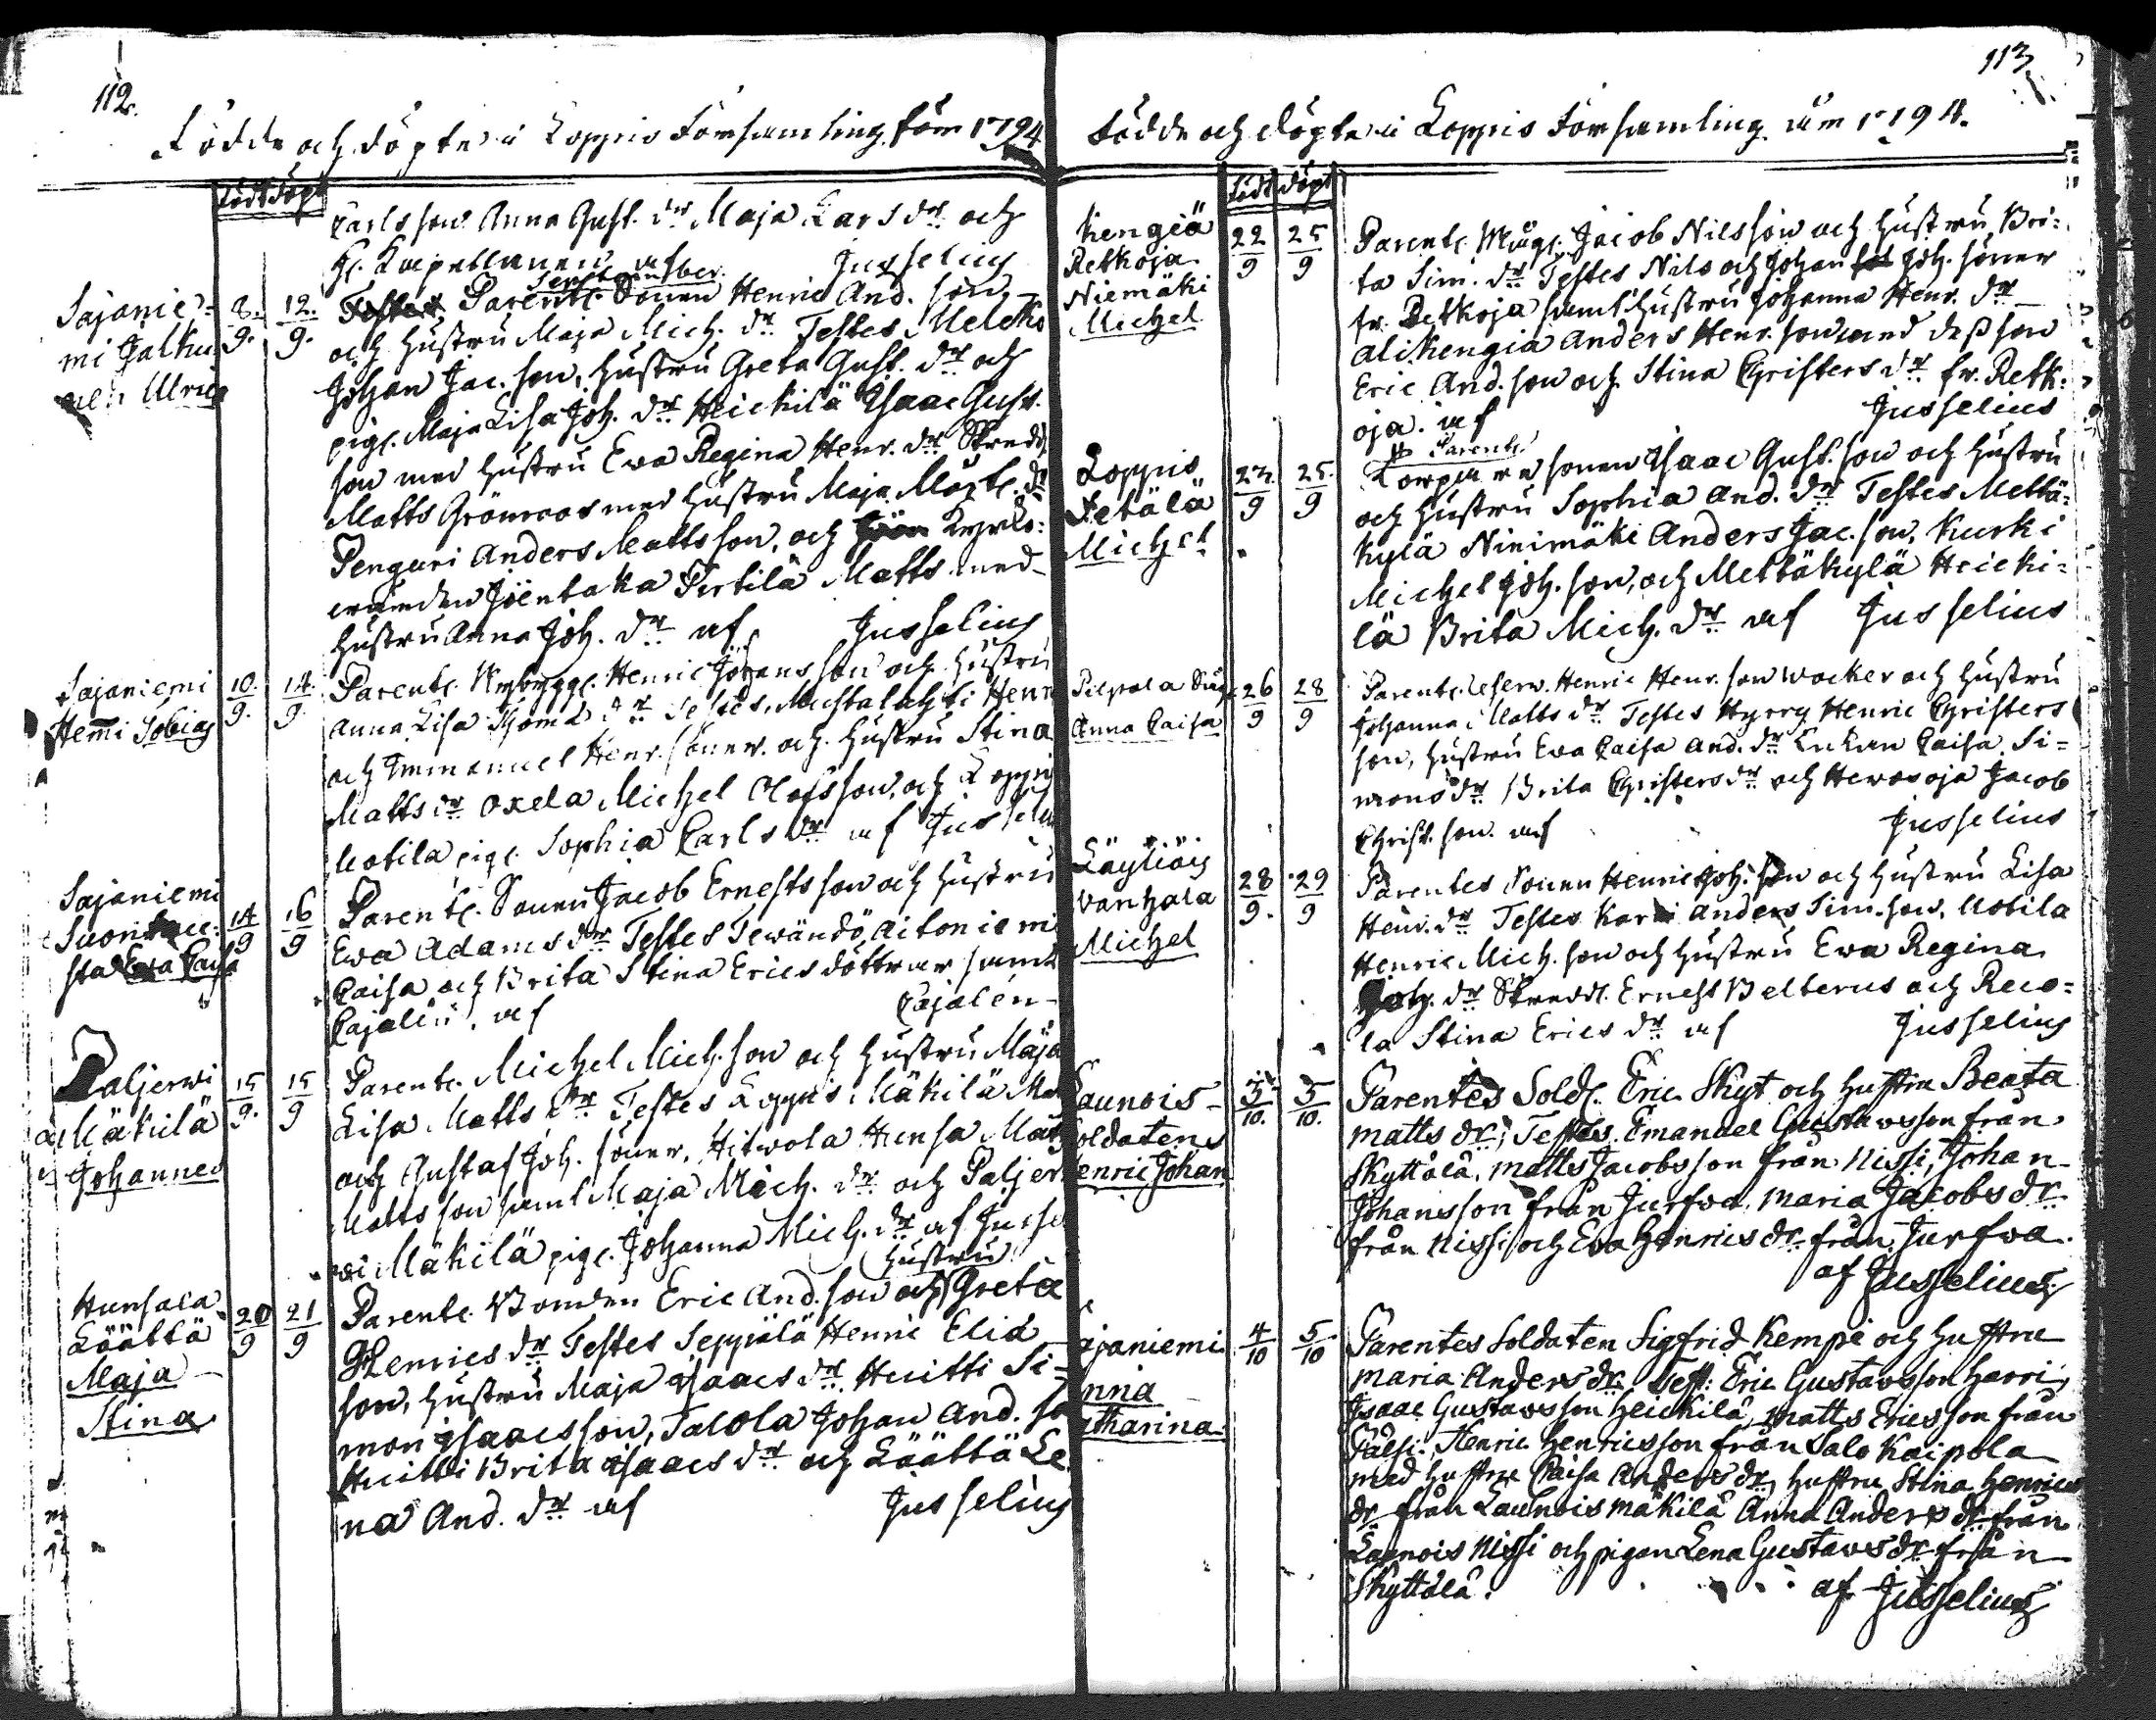 112.
Födde och döpte i Loppis Församling åm 1794
född döpt
Carlsson Anna Gust. dr Maja Carsdr och
H. Kapellanen af Jusselius
Sajanie=
mi Jalku
Ulric
8. 12.
9. 9.
Parente. Sonen Henric And. son
och Hustru Maja Mich. dr Testes Melcko
Johan Jac. son, Hustru Greta Gust. dr och
pig. Maja Lisa Joh. dr Heickilä Isaac Gust.
son med Hustru Ewa Regina Henr. dr Skredd.
Matts Grönroos med Hustru Maja dr
Penguri Anders Mattsson, och Kyrko=
wärden Joentaka Pertilä Matts med
Hustru Anna Joh. dr af Jusselius
Sajaniemi
Hemi Tobias
10. 14.
9. 9.
Parente. Nybygg. Henric Johansson och Hustru
Anna Lisa Thoms dr Testes, Mustalahti Henr
och Immanuel Henr. söner och Hustru Stina
Mattsdr Oxela Michel Olofsson, och Loppis
Uotila pige Sophia Carlsdr af Jusselius
Sajaniemi
sta Ewa Caisa
14 16
9 9
Parente. Sonen Jacob Ernestsson och Hustru
Ewa Adamsdr Testes Tewändö Aitoniemi
Caisa och Brita Stina Ericsdöttrar samt
Cajalin. af Cajalén
Paljerwi
Mäkilä
Johannes
15 15
9. 9
Parente. Michel Mich. son och Hustru Maja
Lisa Mattsdr Testes Loppis Mäkilä
och Gustaf Joh. söner, Hitwola Hunsa Matts
Mattsson samt Maja Mich. dr och Paljer
wi Mäkilä pige. Johanna Mich. dr af Jusse
Hunsala
Läättä
Maja
Stina
20 21
9 9
Hustru
Parente. Bonden Eric And. son och Greta
Henrics dr Testes Seppälä Henric Elia
son, Hustru Maja Isaacs dr Huitti Si=
mon Isaacsson, Talola Johan And. so
Huitti Brita Isaacs dr och Läättä Le
na And. dr af Jusselius
113
Födde och döpte i Loppis Församling åm 1794.
född döpt
Kengiä
Retkoja
Niemäki
Michel
22 25
9 9
Parente. Jacob Nilsson och Hustru Bri=
ta Sim. dr Testes Nils och Johan Joh. söner
fr. Retkoja samt Hustru Johanna Henr. dr
Alikengia Anders Henr. son med dess son
Eric And. son och Stina Christersdr fr. Retk=
oja. af Jusselius
Loppis
Jetälä
Michel
25.
9 9
Parente
sonen Isaac Gust. son och Hustru
och Hustru Sophia And. dr Testes Mettä=
kylä Ninimäki Anders Jac. son, Kurki
Michel Joh. son, och Mettäkylä Heicki=
lä Brita Mich. dr af Jusselius
Pilpala
Anna Caisa
26 28
9 9
Parente. Reserw. Henric Henr. son Wacker och Hustru
Johanna Matts dr Testes Hyrry Henric Christers
son, Hustru Ewa Caisa And. dr Caisa Si=
mons dr Brita Christersdr och Hewosoja Jacob
Christ. son. af Jusselius
Läyliäis
Wanhala
Michel
28 29
9. 9
Parentes Sonen Henric Joh. son och Hustru Lisa
Henr. dr Testes Karri Anders Sim. son, Uotila
Henric Mich. son och Hustru Ewa Regina
Joh. dr Skredd. Ernest Belterus och Reco=
la Stina Erics dr af Jusselius
Launois
Soldatens
Henric Johan
3 5
10. 10.
Parentes Sold. Eric Skyt och hustru Beata
Matts dr; Testes Emanuel Gustavsson från
Skyttälä, Matts Jacobsson från Nissi, Johan
Johansson från Jurfwa, Maria Jacobs dr
från Nissi och Ewa Henrics dr från Jurfwa.
af Jusselius
ajaniemi
nna
atharina
4 5
10 10
Parentes Soldaten Sigfrid Kempe och hustru
Maria Anders dr Test: Eric Gustavsson Harri,
Isaac Gustavsson Heickilä, Matts Ericsson från
Pälsi. Henric Henricsson från Salo Kaipola
med hustru Caisa Anders dr, hustru Stina Henrics
dr från Launois Mäkilä Anna Anders dr från
Launois Nissi och pigan Lena Gustavs dr från
Skyttälä. af Jusselius